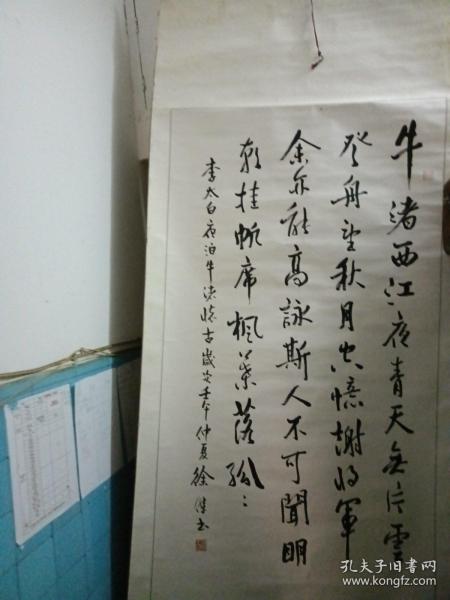 牛渚西江夜青天無片雲
登舟望秋月空憶謝將軍
余亦能高詠斯人不可聞明
朝挂帆席楓葉落紛〻
李太白夜泊牛渚懷古歲次壬午仲夏徐
孔夫子旧书网
www.kongfz.com